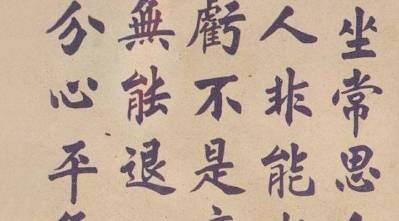 坐常思
人非能
虧不是
無能退
分心平